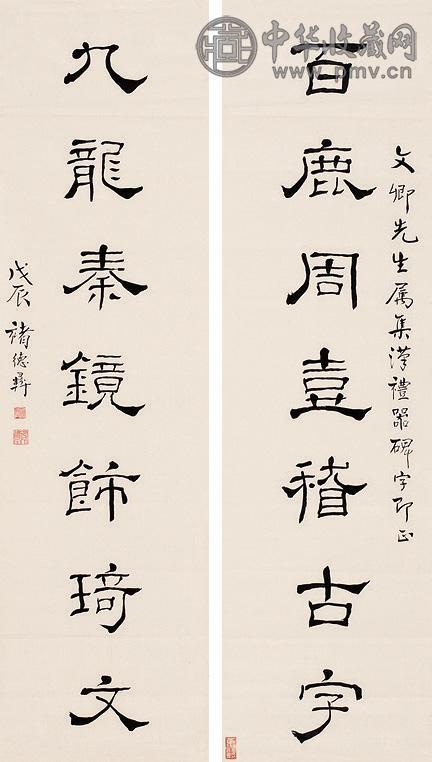 中华收藏网
www.pmv.cn
百鹿周壴稽古字
文卿先生属集漢禮器碑字即正
九龍秦鏡飾琦文
戊辰褚德彝